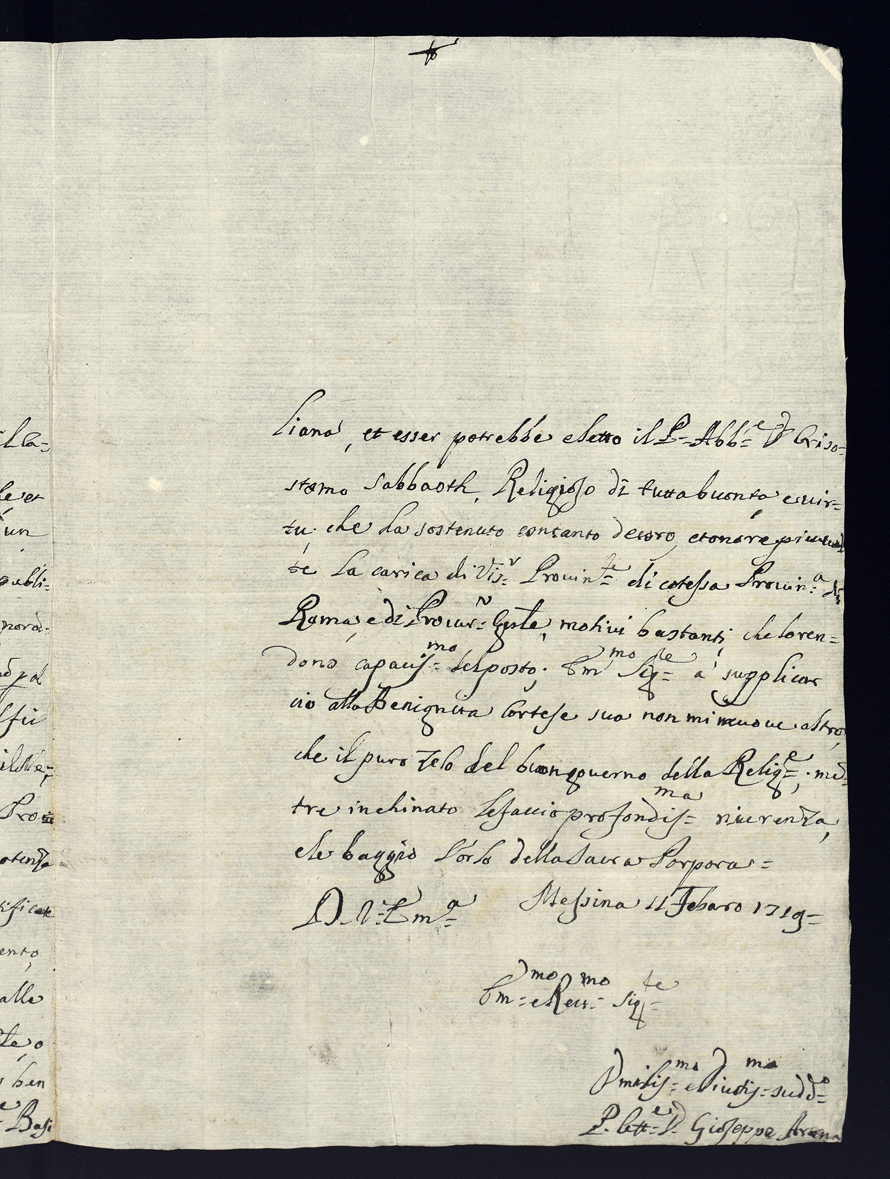 liana, et esser potrebbe eletto il P. Abb.e D. Criso=
stomo Sabbaoth, Religioso di tutta buontà e vir=
tù, che ha sostenuto con tanto decoro, et onore
te la carica di Vis.r Provin.le di cotessa Provin.a di
Roma, e di Procur.r Gñle, motivi bastanti, che lo ren=
dono capacis.mo del posto; Em.mo Sig.re à supplicar
cio alla Benignità Cortese sua non mi muove altro,
che il puro Zelo del buon governo della Relig.e; mē=
tre inchinato le faccio profondis.ma riverenza,
e le baggio l'orlo della Sacra Porpora=
D. V. Em.a Messina 11 Febaro 1719=
Em.mo e Rev.mo Sig.re
Vmilis.mo e Divotis.mo sudd.o
P. Lett.e D. Giuseppe Arena
lle et
un
publi=
ento,
alle
ben